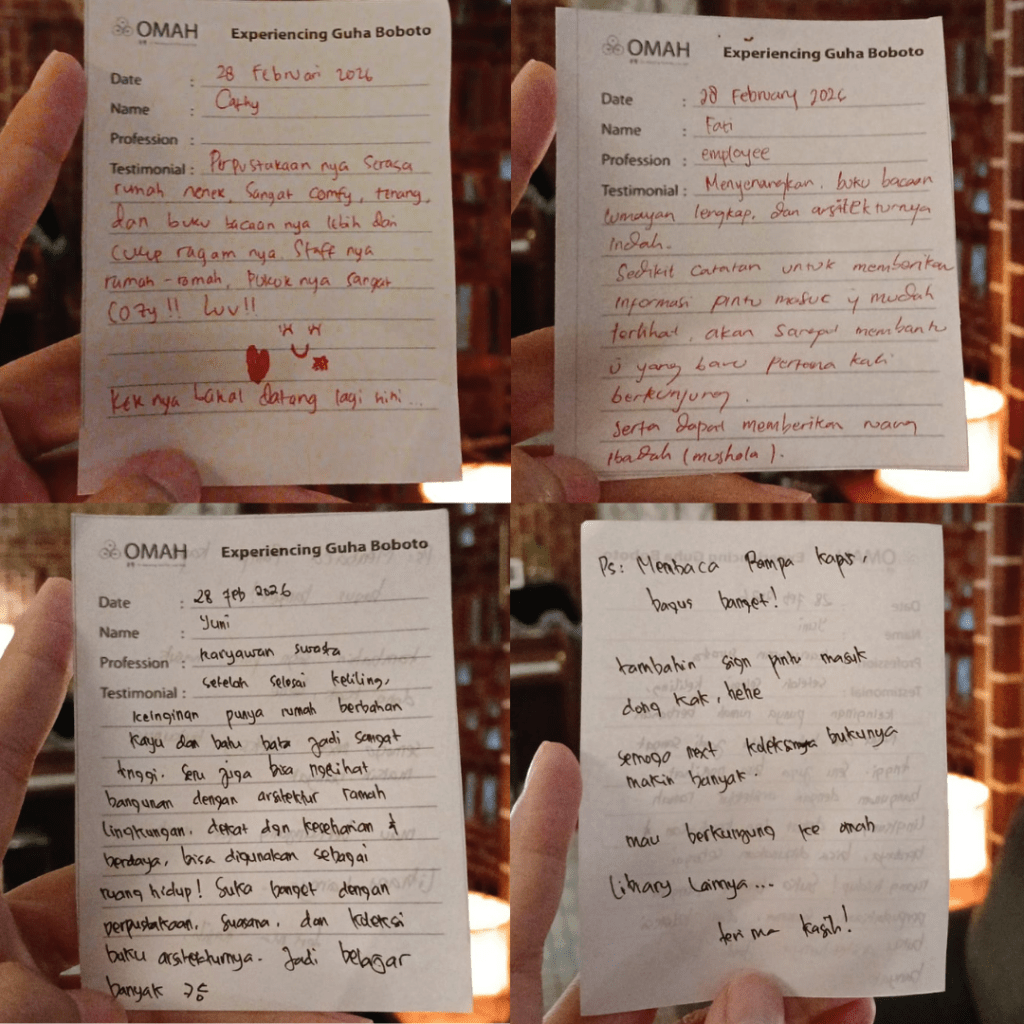 OMAH Experiencing Guha Boboto
Date : 28 Februari 2026
Name : Cathy
Profession :
Testimonial : Perpustakaan nya serasa
rumah nenek, sangat comfy, tenang,
dan buku bacaan nya lebih dari
cukup ragam nya. Staff nya
ramah-ramah, pokok nya sangat
cozy!! Luv!!
Kek nya bakal datang lagi hihi...
OMAH Experiencing Guha Boboto
Date : 28 February 2026
Name : Fati
Profession : employee
Testimonial : Menyenangkan, buku bacaan
lumayan lengkap, dan arsitekturnya
Indah.
Sedikit catatan untuk memberikan
informasi pintu masuc y mudah
terlihat, akan sangat membantu
u yang baru pertama kali
berkunjung.
serta dapat memberikan ruang
Ibadah (mushola).
OMAH Experiencing Guha Boboto
Date : 28 Feb 2026
Name : Yuni
Profession : karyawan swasta
Testimonial : setelah selesai keliling,
keinginan punya rumah berbahan
kayu dan batu bata jadi sangat
tinggi. Seru juga bisa ngelihat
bangunan dengan arsitektur ramah
lingkungan, dekat dgn keseharian &
berdaya, bisa digunakan sebagai
ruang hidup! Suka banget dengan
perpustakaan, suasana, dan koleksi
buku arsitekturnya. Jadi belajar
banyak
Ps: Membaca Rampa kapo,
bagus banget!
tambahin sign pintu masuk
dong kak, hehe
semoga next koleksinya bukunya
makin banyak.
mau berkunjung ke omah
library lainnya...
terima kasih!